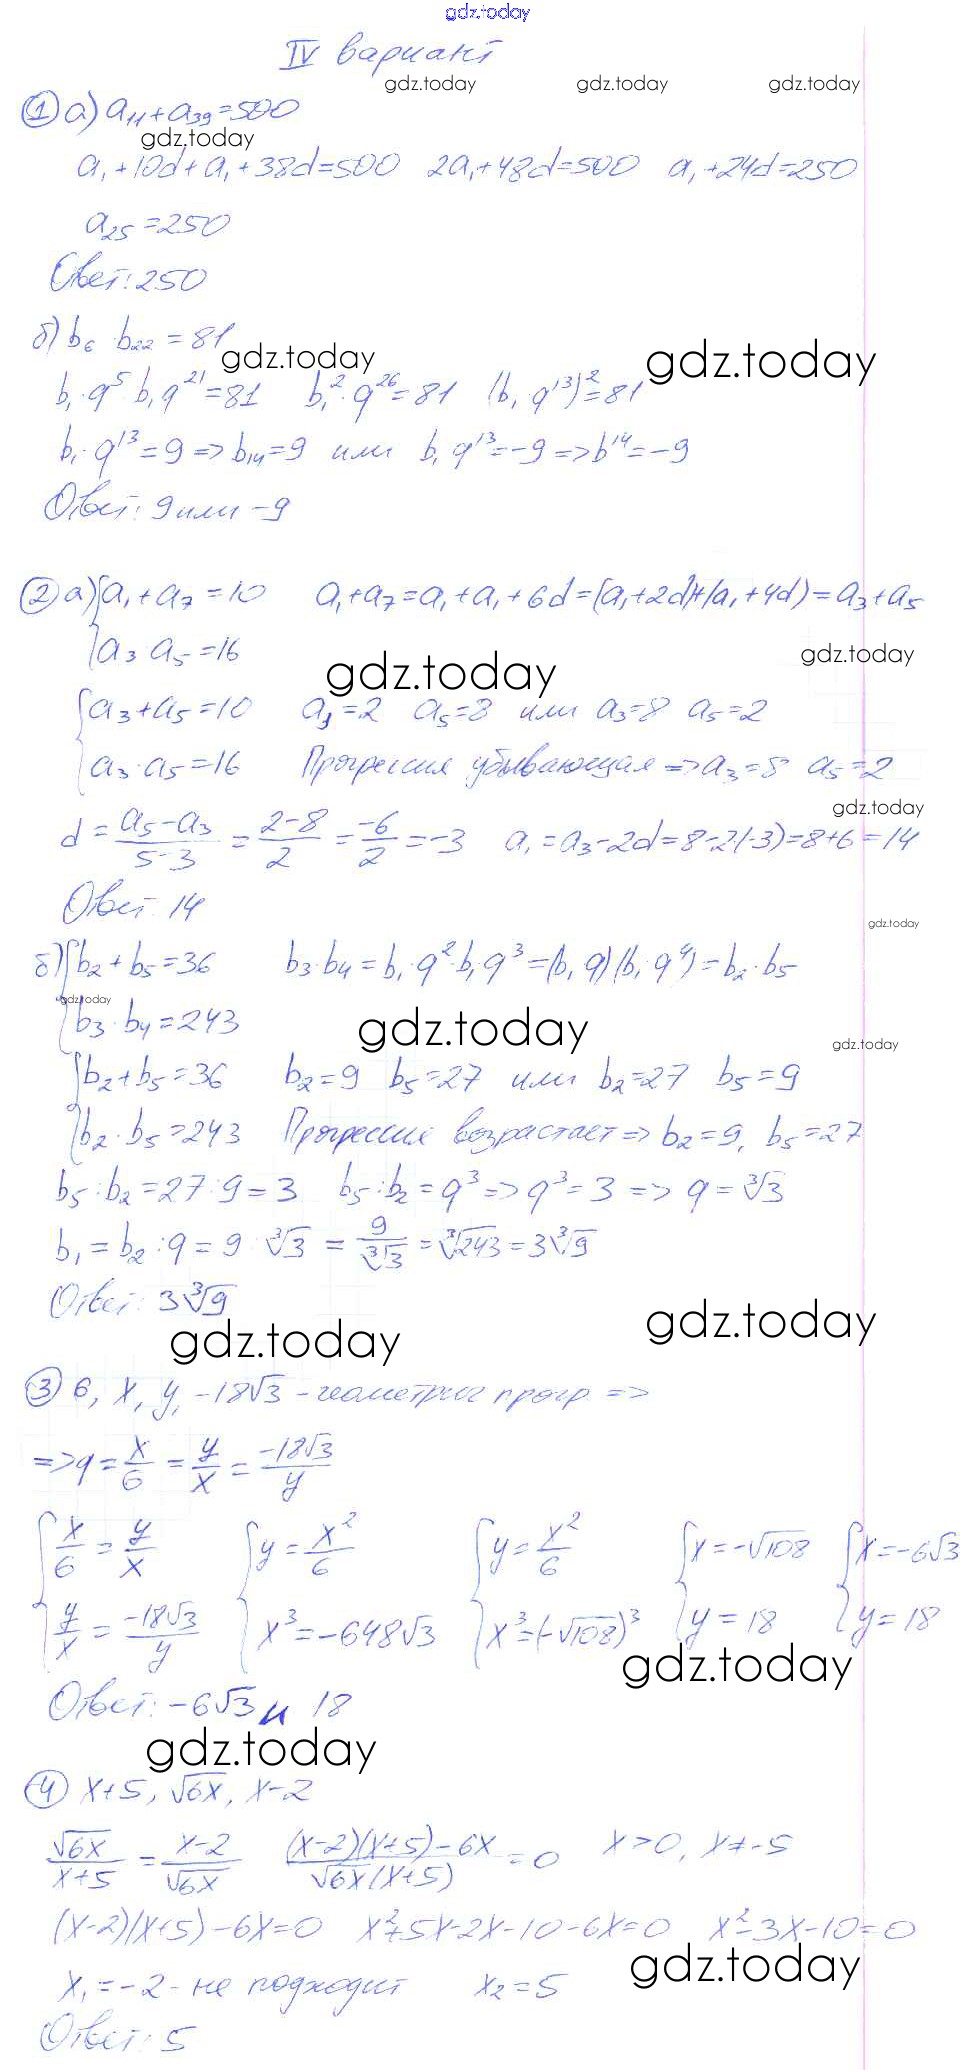 gdz.today
IV вариант
gdz.today gdz.today gdz.today
① а) a₁₁ + a₃₉ = 500
gdz.today
a₁ + 10d + a₁ + 38d = 500 2a₁ + 48d = 500 a₁ + 24d = 250
a₂₅ = 250
Ответ: 250
б) b₆ · b₂₂ = 81
gdz.today gdz.today
b₁ · q⁵ · b₁ q²¹ = 81 b₁² · q²⁶ = 81 (b₁ q¹³)² = 81
b₁ · q¹³ = 9 => b₁₄ = 9 или b₁ q¹³ = -9 => b¹⁴ = -9
Ответ: 9 или -9
② а) { a₁ + a₇ = 10 a₁ + a₇ = a₁ + a₁ + 6d = (a₁ + 2d) + (a₁ + 4d) = a₃ + a₅
a₃ a₅ = 16
gdz.today gdz.today
{ a₃ + a₅ = 10 a₃ = 2 a₅ = 8 или a₃ = 8 a₅ = 2
a₃ · a₅ = 16 Прогрессия убывающая => a₃ = 8 a₅ = 2
gdz.today
d = (a₅ - a₃)/(5 - 3) = (2 - 8)/2 = -6/2 = -3 a₁ = a₃ - 2d = 8 - 2(-3) = 8 + 6 = 14
Ответ: 14
gdz.today
б) { b₂ + b₅ = 36 b₃ · b₄ = b₁ · q² · b₁ q³ = (b₁ q)(b₁ · q⁴) = b₂ · b₅
gdz.today
b₃ · b₄ = 243
gdz.today gdz.today
{ b₂ + b₅ = 36 b₂ = 9 b₅ = 27 или b₂ = 27 b₅ = 9
b₂ · b₅ = 243 Прогрессия возрастает => b₂ = 9, b₅ = 27
b₅ : b₂ = 27 : 9 = 3 b₅ : b₂ = q³ => q³ = 3 => q = ∛3
b₁ = b₂ : q = 9 : ∛3 = 9/∛3 = ∛243 = 3∛9
Ответ: 3∛9
gdz.today gdz.today
③ 6, x, y, -18√3 - геометрич прогр. =>
=> q = x/6 = y/x = -18√3/y
{ x/6 = y/x { y = x²/6 { y = x²/6 { x = -√108 { x = -6√3
y/x = -18√3/y x³ = -648√3 x³ = (-√108)³ y = 18 y = 18
gdz.today
Ответ: -6√3 и 18
gdz.today
④ x + 5, √6x, x - 2
√6x/(x + 5) = (x - 2)/√6x ((x - 2)(x + 5) - 6x)/(√6x (x + 5)) = 0 x > 0, x ≠ -5
(x - 2)(x + 5) - 6x = 0 x² + 5x - 2x - 10 - 6x = 0 x² - 3x - 10 = 0
gdz.today
x₁ = -2 - не подходит x₂ = 5
Ответ: 5